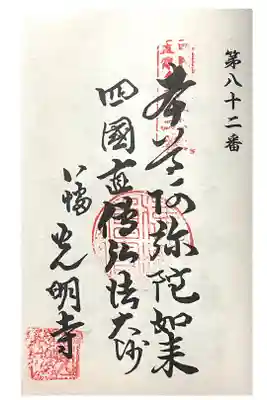 第八十二番
本尊阿弥陀如来
四國直傳弘法大师
八幡光明寺